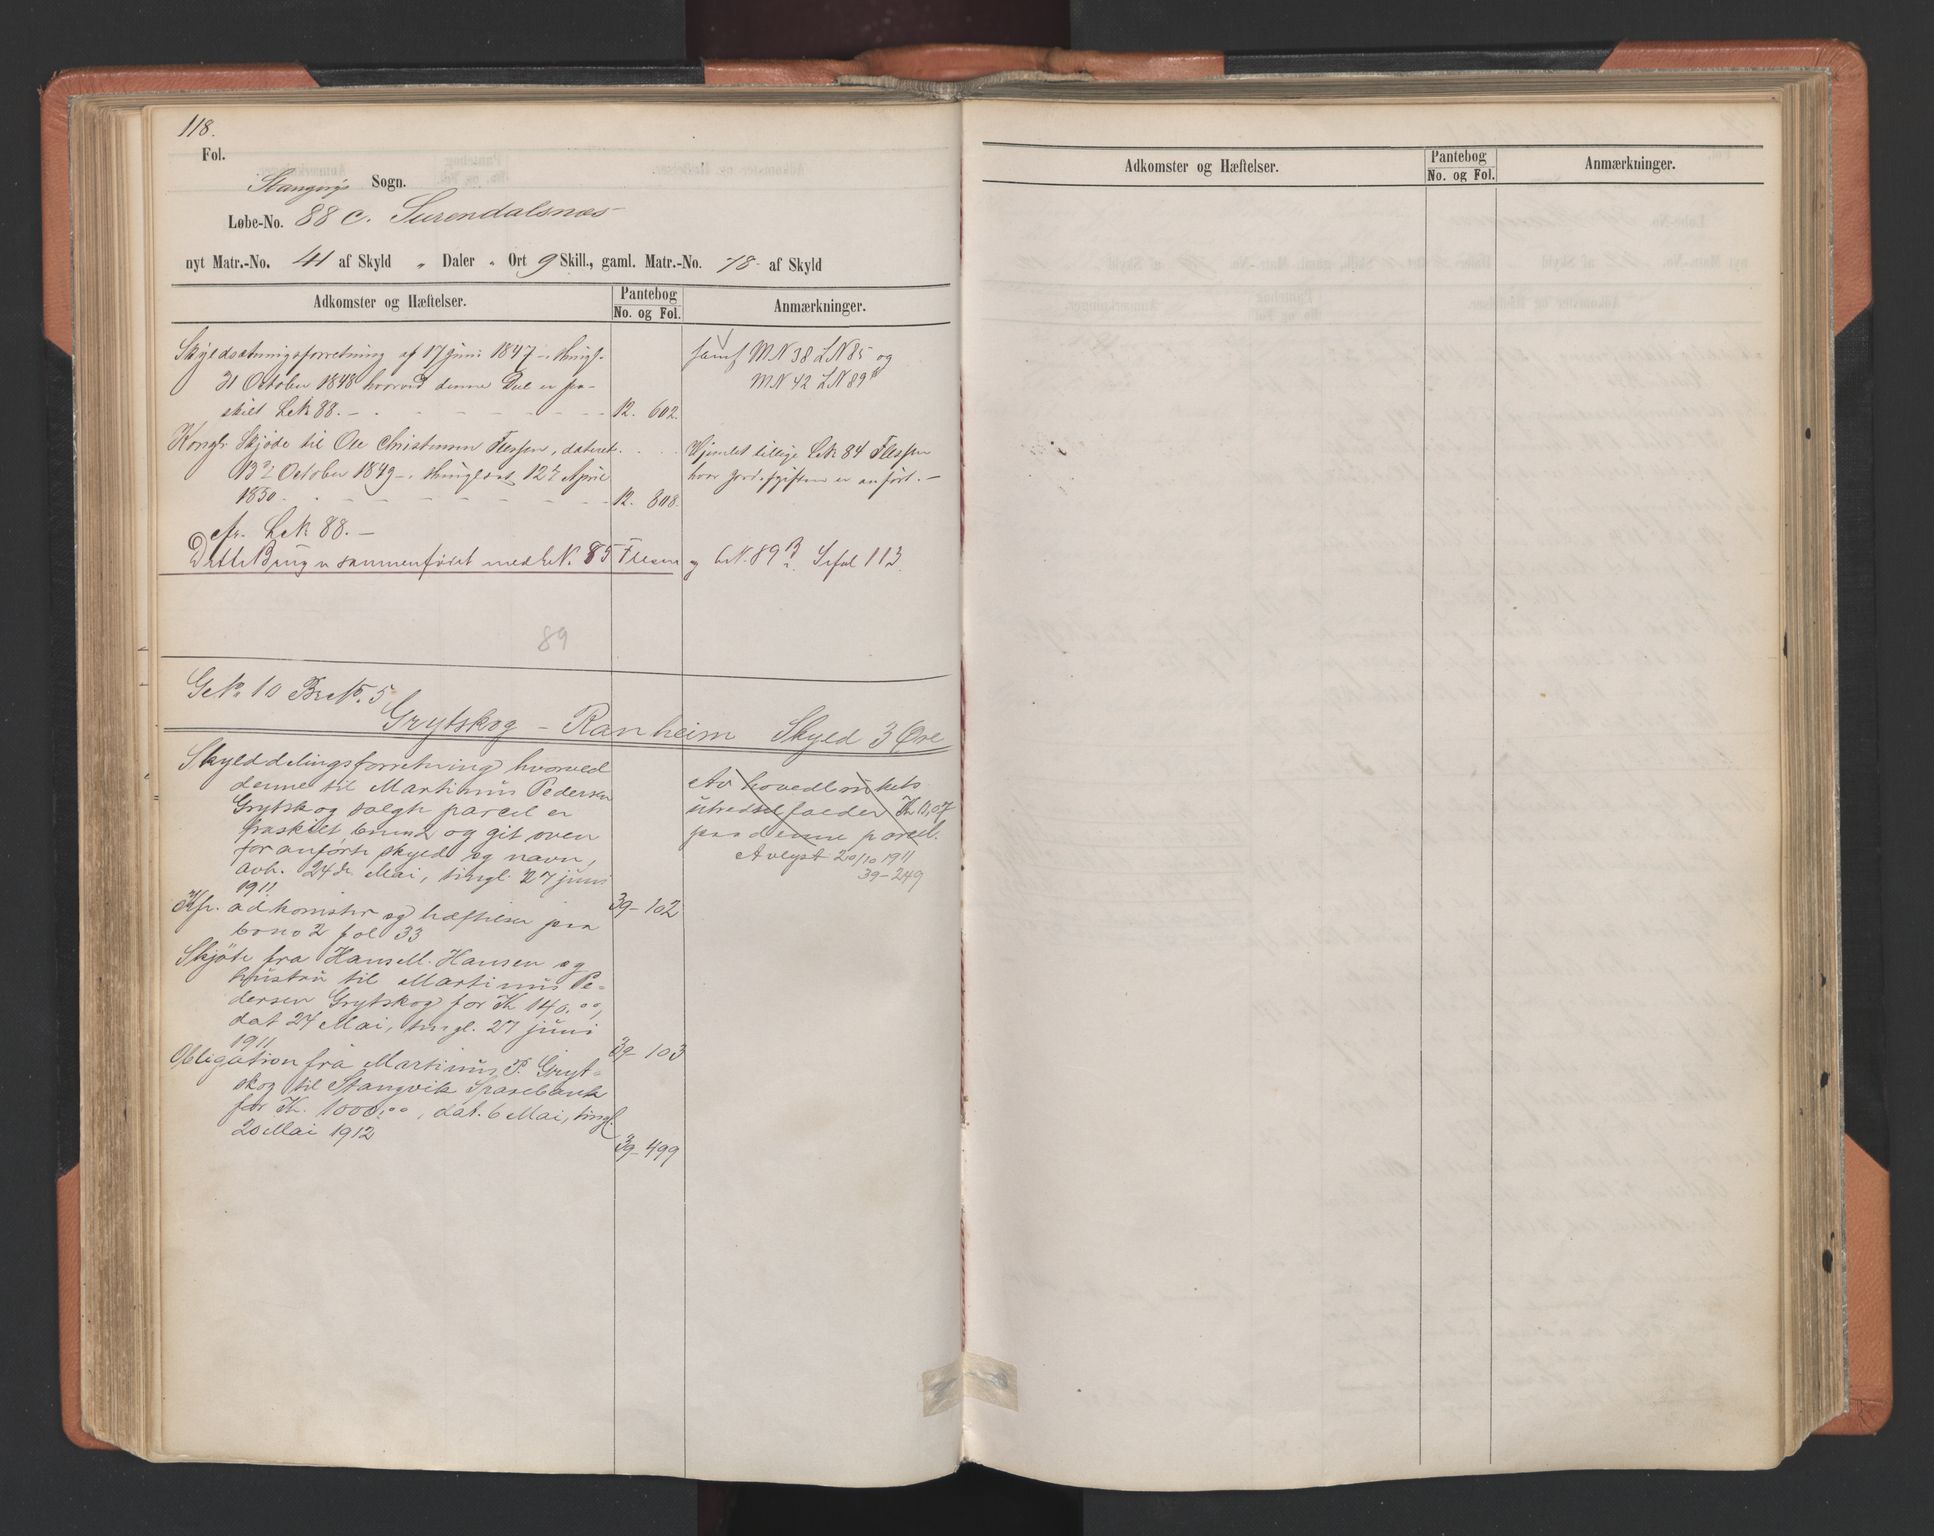 118.
Fol.
Stangvigs Sogn.
Løbe-No. 88 c. Surendalsnæs
nyt Matr.-No. 41 af Skyld „ Daler „ Ort 9 Skill., gaml. Matr.-No. 78 af Skyld
Adkomster og Hæftelser.
Pantebog
No. og Fol.
Anmærkninger.
Skyldsætningsforretning af 17 juni 1847 - thingl.
31 October 1848 hvorved denne Del er fra-
skilt LN 88. - 12. 602.
samf MN 38 LN 85 og
MN 42 LN 89
Kongl. Skjøde til Ole Christensen Flessen, dateret
13de October 1849 -. thinglæst 12te April
1850. 12. 808.
Hjemlet tillige LN 84 Flessen
hvor jordafgiften er anført. -
cfr. LN 88. -
Dette Brug er sammenføiet med LN. 85 Flesen og LN. 89 B. Se fol 113.
89
GNo 10 BrNo. 5
Grytskog - Ranheim Skyld 3 Øre
Skylddelingsforretning hvorved
denne til Martinus Pedersen
Grytskog solgte parcel er
fraskilt bruno 2 og git oven
for anførte skyld og navn,
avh. 24de Mai, tingl. 27 juni
1911 39-102
Av hovedbrukets
utredsel falder Kr 11,07
paa denne parcel.
Avlyst 20/10 1911
39-249
Kfr. adkomster og hæftelser paa
bono 2 fol 33
Skjøte fra Hans M. Hansen og
hustru til Martinus Pe-
dersen Grytskog for Kr 140.00,
dat 24 Mai, tingl. 27 juni
1911 39-103
Obligation fra Martinus P. Gryt-
skog til Stangvik Sparebank
for Kr. 1000.00, dat. 6 Mai, tingl.
20 Mai 1912 39-499
Adkomster og Hæftelser.
Pantebog
No. og Fol.
Anmærkninger.